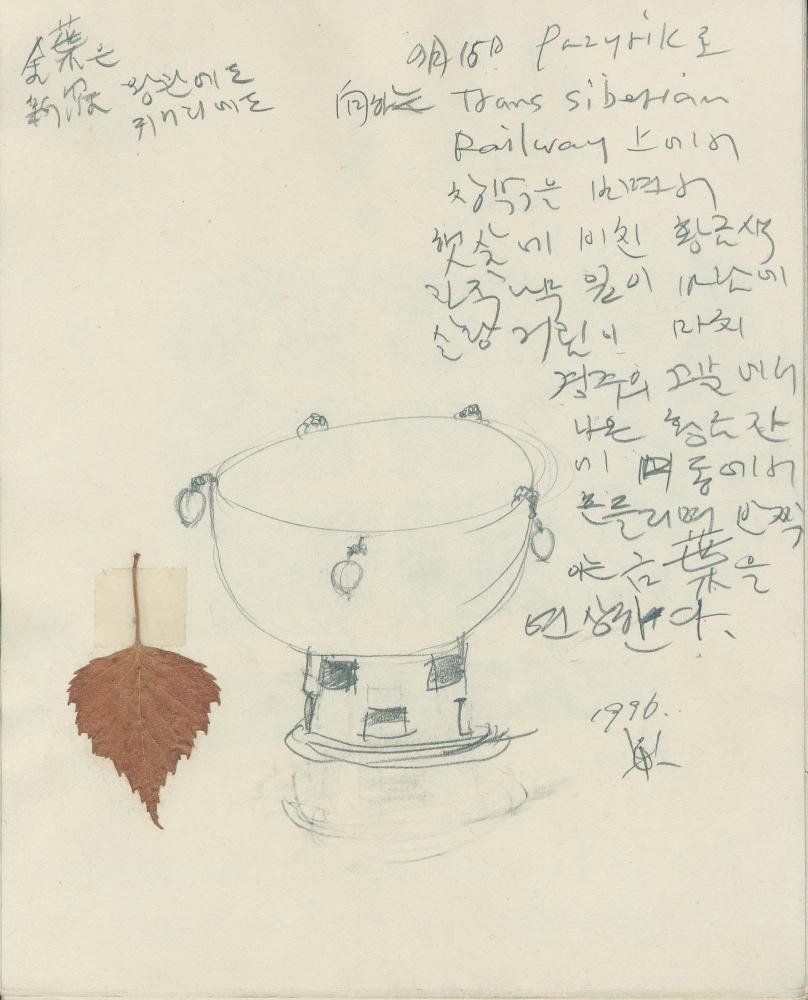 金葉은
新羅 왕관에도
귀거리에도
9月15日 Pazyrik로
向하는 Trans siberian
Railway 上에서
창밖을 보면서
햇살에 비친 황금색
자작나무 잎이
살랑 거림이 마치
경주의 고분에서
나온 황금잔
이
흔들리며 반짝
이는 금葉을
연상한다.
1996.